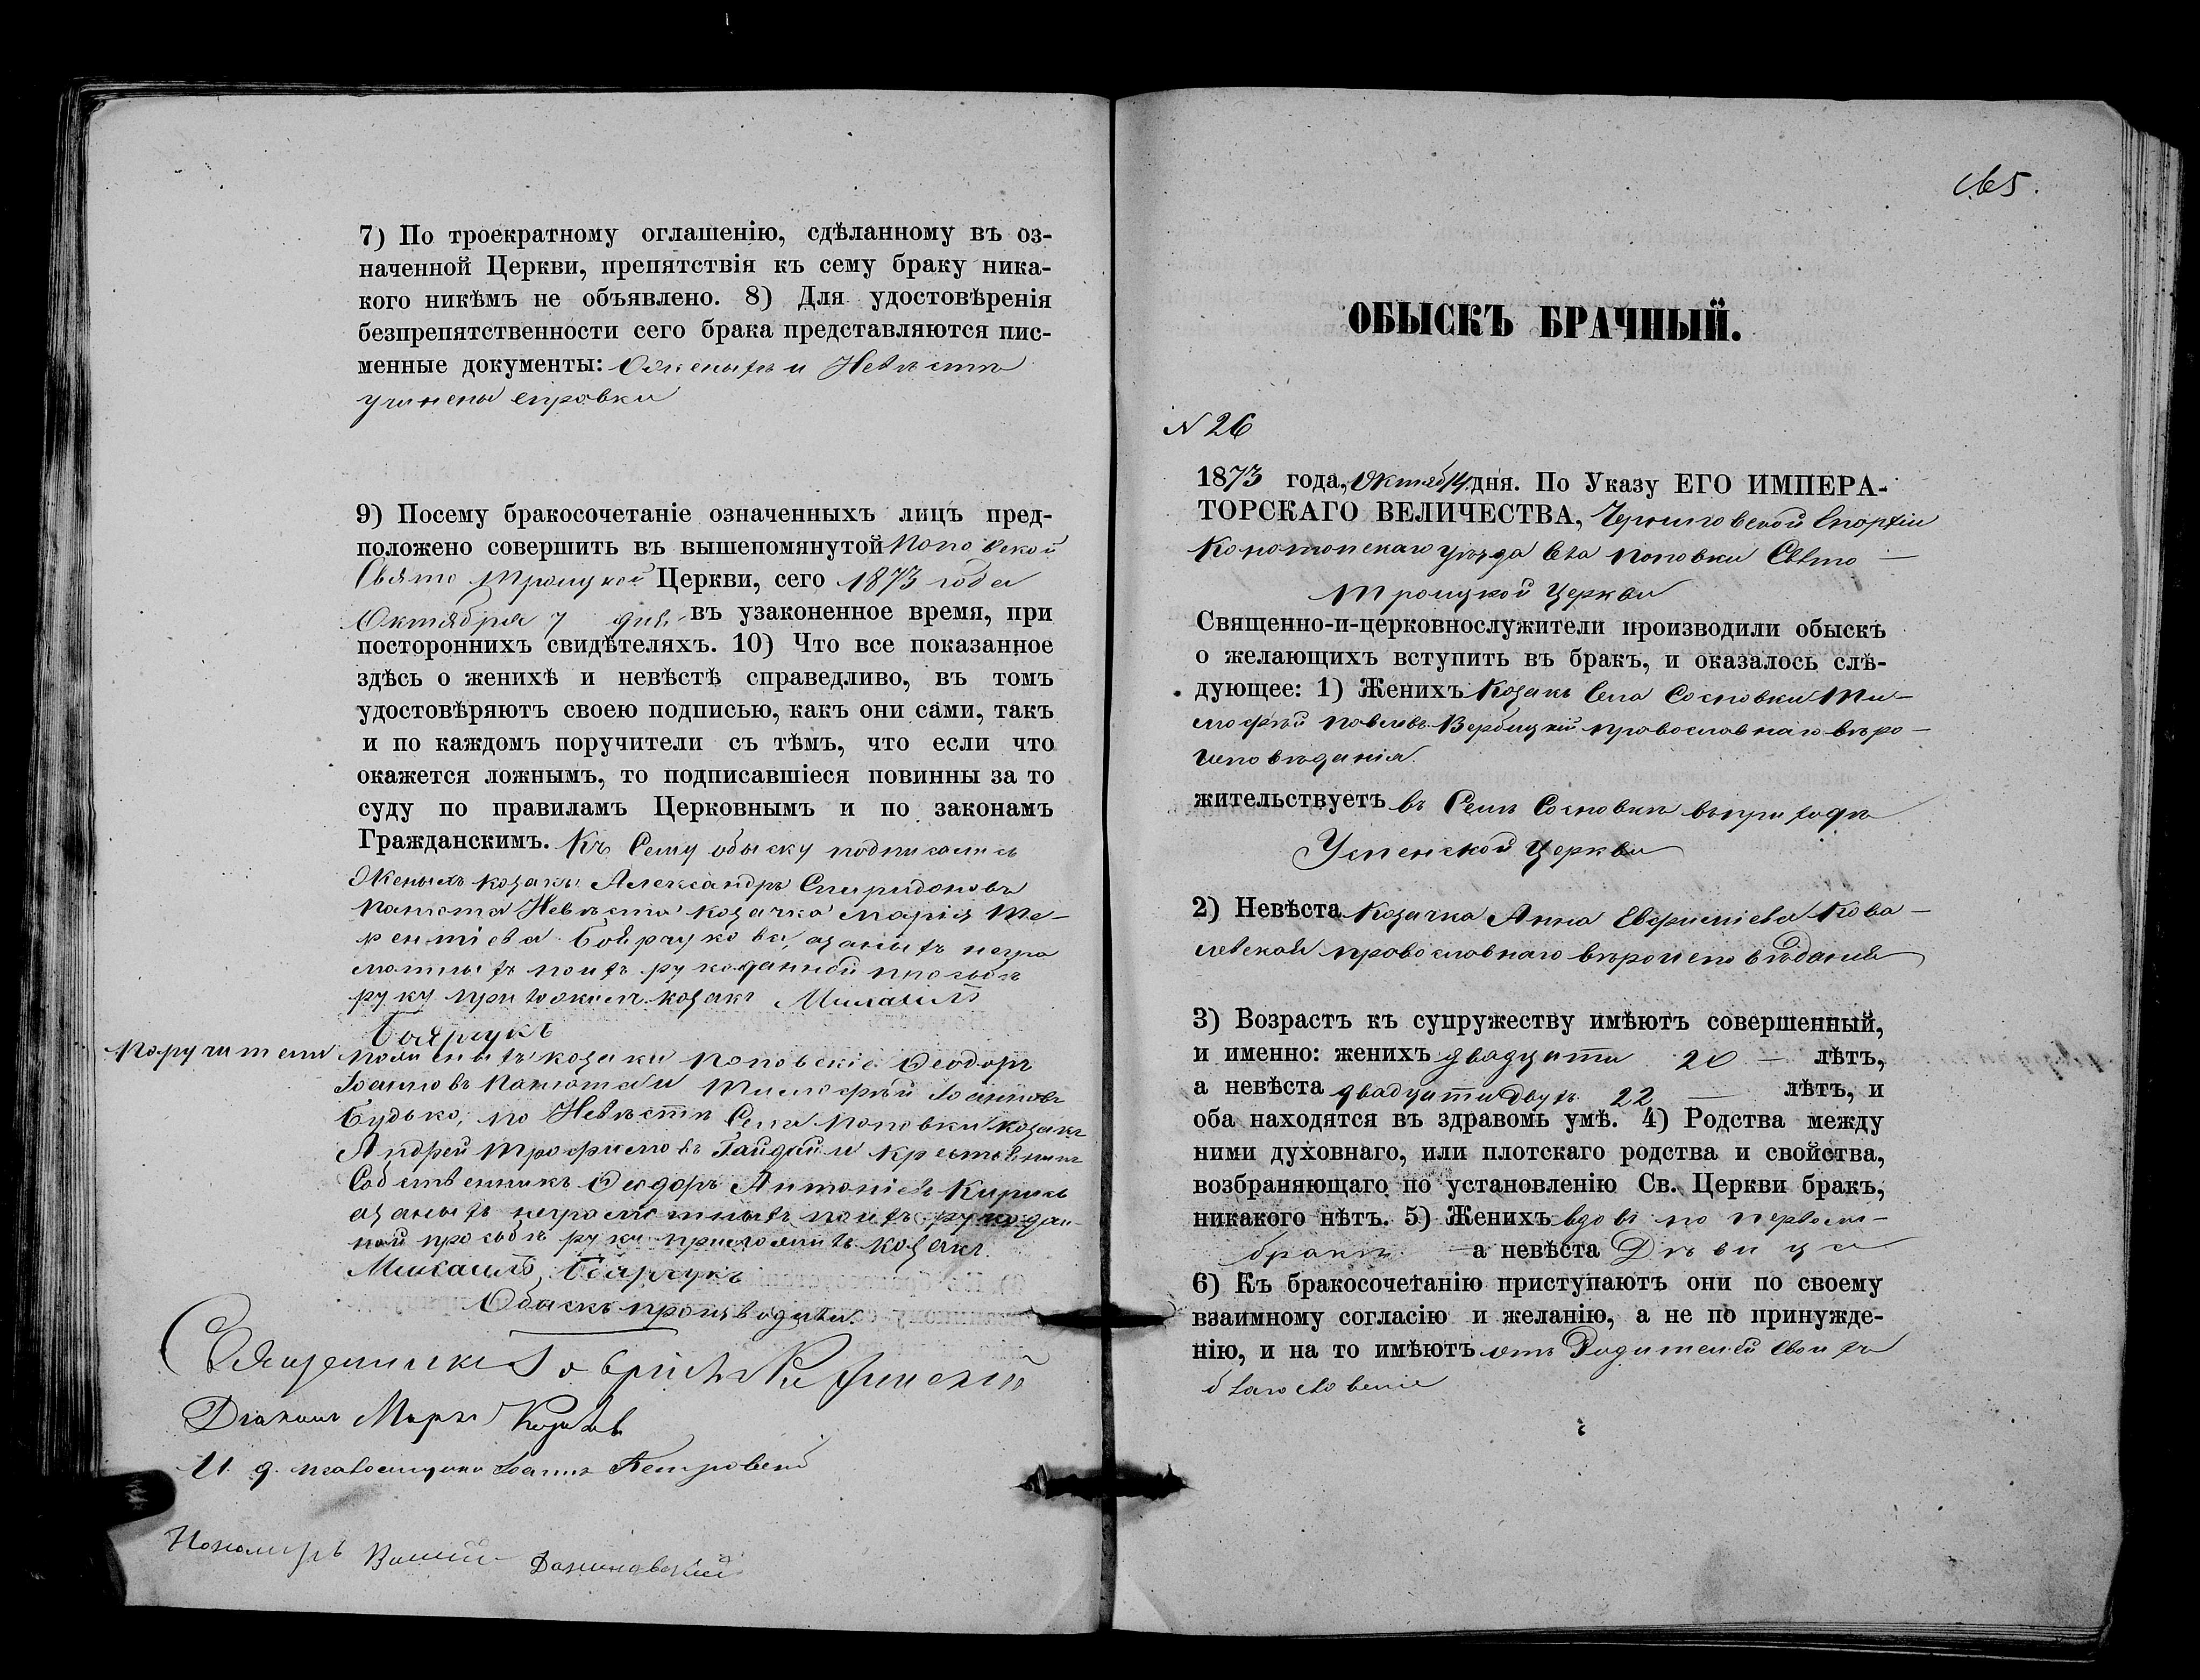 7) По троекратному оглашенію, сдѣланному въ оз-
наченной Церкви, препятствія къ сему браку ника-
кого никѣмъ не объявлено. 8) Для удостовѣренія
безпрепятственности сего брака представляются пис-
менные документы: О женихѣ и Невѣстѣ
учинены справки
9) Посему бракосочетаніе означенныхъ лицъ пред-
положено совершить въ вышепомянутой Поповской
Свято Троицкой Церкви, сего 1873 года
Октября 7 дня въ узаконенное время, при
постороннихъ свидѣтеляхъ. 10) Что все показанное
здѣсь о женихѣ и невѣстѣ справедливо, въ томъ
удостовѣряютъ своею подписью, какъ они сами, такъ
и по каждомъ поручители съ тѣмъ, что если что
окажется ложнымъ, то подписавшіеся повинны за то
суду по правиламъ Церковнымъ и по законамъ
Гражданскимъ. Къ Сему обыску подписались
Женихъ козакъ Александръ Спиридоновъ
Панюта Невѣста козачка Марія Те-
рентіева а за ныхъ негра
мотныхъ по ихъ рукоданной прозьбѣ
руку приложилъ козакъ Михаилъ
Боярчукъ
Поручители По женыхѣ козаки Поповскіе Ѳеодоръ
Іоанновъ Панюта и Тимофѣй Іоанновъ
Будько, по Невѣстѣ Села Поповки козакъ
Андрей Трофимовъ Гайдай и Крестьянинъ
Собственникъ Ѳеодоръ Антоніевъ
а за ныхъ неграмотныхъ по ихъ рукодан-
ной прозьбѣ руку приложилъ козакъ
Михаилъ Боярчукъ
Обыскъ производили.
Священникъ Гавріилъ
Діаконъ Маркъ
И. д. псаломщика Іоаннъ Петровскій
Пономарь Василій
65.
ОБЫСКЪ БРАЧНЫЙ.
N 26
1873 года, Октяб 14 дня. По Указу ЕГО ИМПЕРА-
ТОРСКАГО ВЕЛИЧЕСТВА, Черниговской Епархіи
Конотопскаго уѣзда Села Поповки Свято –
Троицкой Церкви
Священно-и-церковнослужители производили обыскъ
о желающихъ вступить въ бракъ, и оказалось слѣ-
дующее: 1) Женихъ Козакъ Села Сосновки Ти-
мофѣй Павловъ Вербицкій православнаго вѣро-
исповѣданія.
жительствуетъ въ Селѣ Сосновкѣ въ приходѣ
Успенской Церкви
2) Невѣста Козачка Анна Евфиміева Кова-
левская православнаго вѣроисповѣданія
3) Возрастъ къ супружеству имѣютъ совершенный,
и именно: женихъ двадцати 20 – лѣтъ,
а невѣста двадцати двухъ 22 – лѣтъ, и
оба находятся въ здравомъ умѣ. 4) Родства между
ними духовнаго, или плотскаго родства и свойства,
возбраняющаго по установленію Св. Церкви бракъ,
никакого нѣтъ. 5) Женихъ вдовъ по первомъ
бракѣ а невѣста Дѣвица
6) Къ бракосочетанію приступаютъ они по своему
взаимному согласію и желанію, а не по принужде-
нію, и на то имѣютъ отъ Родителей своихъ
благословеніе